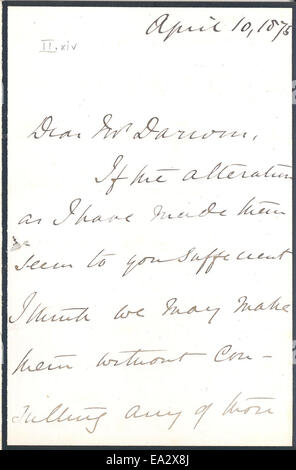 April 10, 1875
II, xiv
Dear Mr Darwin,
If the alterations
as I have made them
seem to you sufficient
I think we may make
them without con-
sulting any of those
alamy
EA2X8J